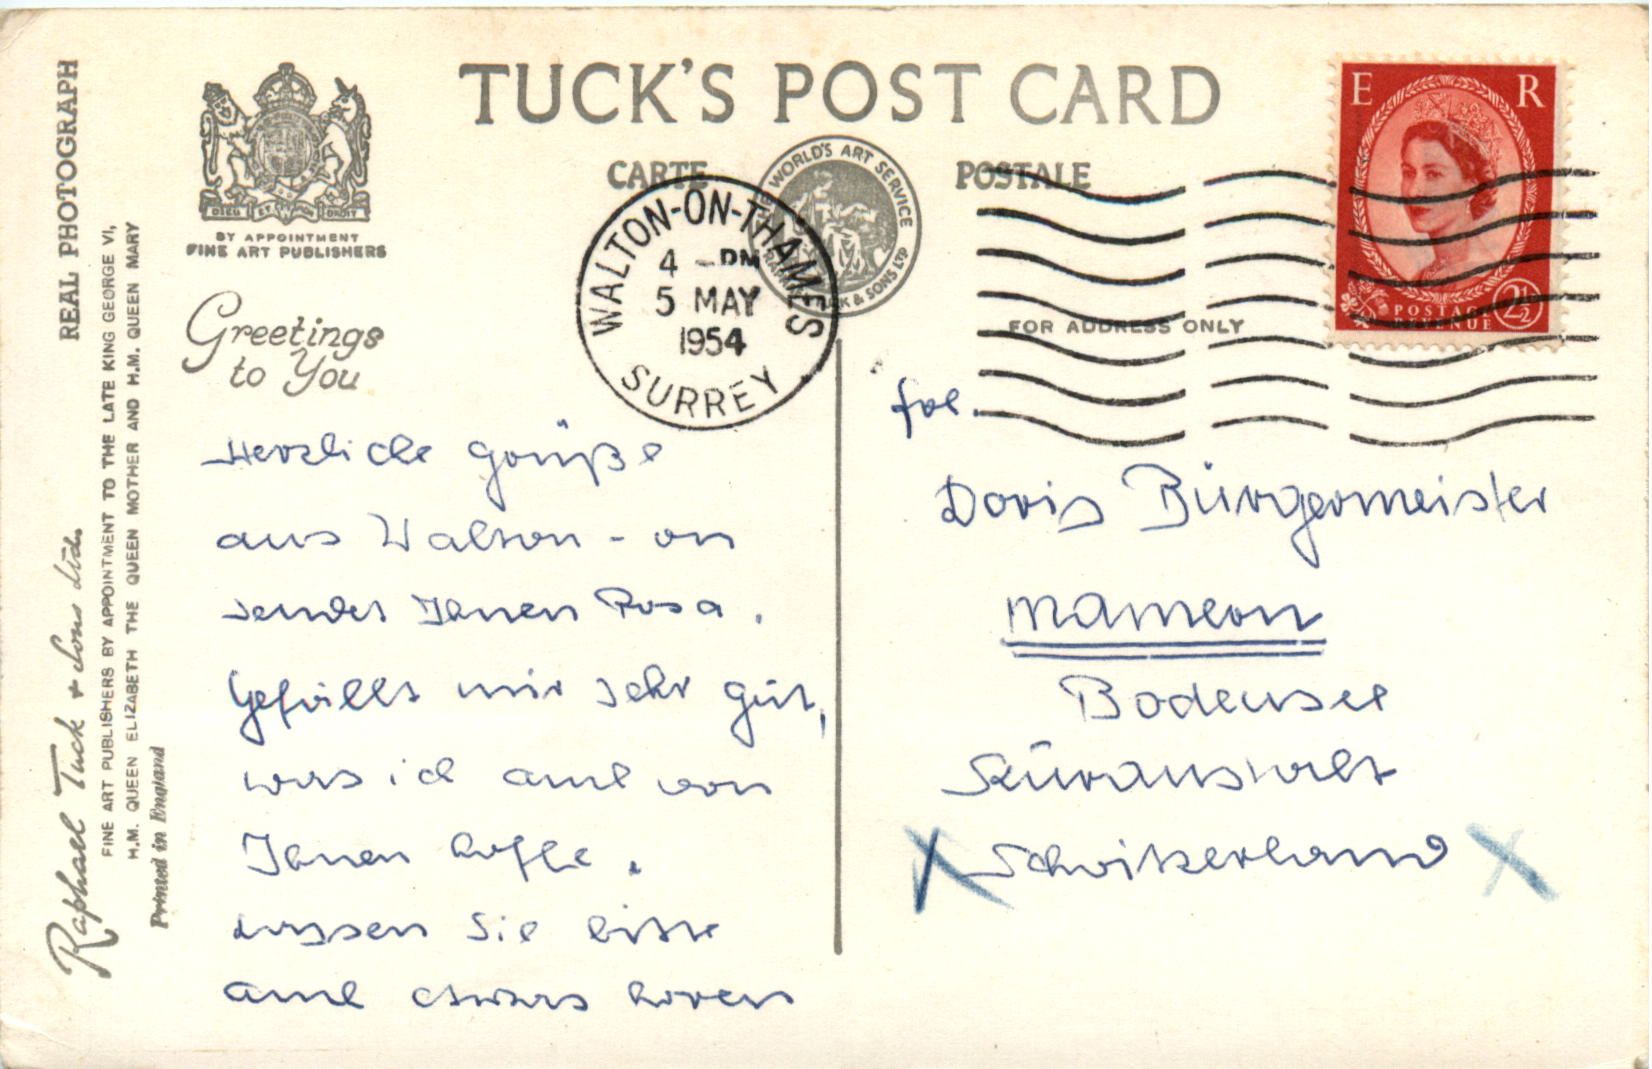 REAL PHOTOGRAPH
Raphael Tuck & Sons Ltd.
FINE ART PUBLISHERS BY APPOINTMENT TO THE LATE KING GEORGE VI,
H.M. QUEEN ELIZABETH THE QUEEN MOTHER AND H.M. QUEEN MARY
Printed in England
DIEU ET MON DROIT
BY APPOINTMENT
FINE ART PUBLISHERS
TUCK'S POST CARD
CARTE POSTALE
THE WORLD'S ART SERVICE
RAPHAEL TUCK & SONS LTD
WALTON-ON-THAMES
4 - PM
5 MAY
1954
SURREY
E R
POSTAGE
REVENUE
2½
FOR ADDRESS ONLY
Greetings
to You
Herzliche Grüße
aus Walton-on
sendet Ihnen Rosa.
Gefällt mir sehr gut,
was ich auch von
Ihnen hoffe.
Lassen Sie bitte
auch etwas hören
Doris Bürgermeister
Mamern
Bodensee
Kuranstalt
Schwitzerland